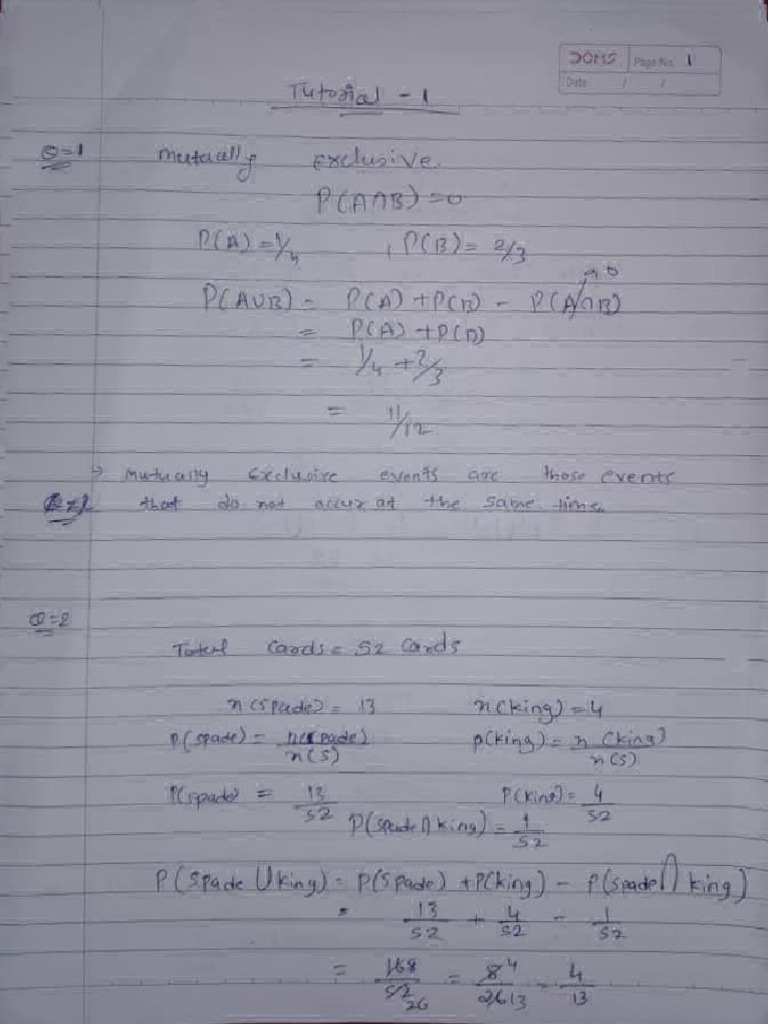 DOMS Page No. 1
Date / /
Tutorial - 1
Q=1 mutually exclusive.
P(A∩B)=0
P(A)=1/4 , P(B)= 2/3
P(A∪B) = P(A) + P(B) - P(A∩B) 0
= P(A) + P(B)
= 1/4 + 2/3
= 11/12
→ Mutually exclusive events are those events
that do not occur at the same time.
Q=2
Total Cards = 52 Cards
n(spade) = 13 n(king) = 4
P(spade) = n(spade)/n(S) p(king) = n(king)/n(S)
P(spade) = 13/52 P(king) = 4/52
P(spade ∩ king) = 1/52
P(spade ∪ king) = P(spade) + P(king) - P(spade ∩ king)
= 13/52 + 4/52 - 1/52
= 16 8/52 26 = 8 4/26 13 = 4/13